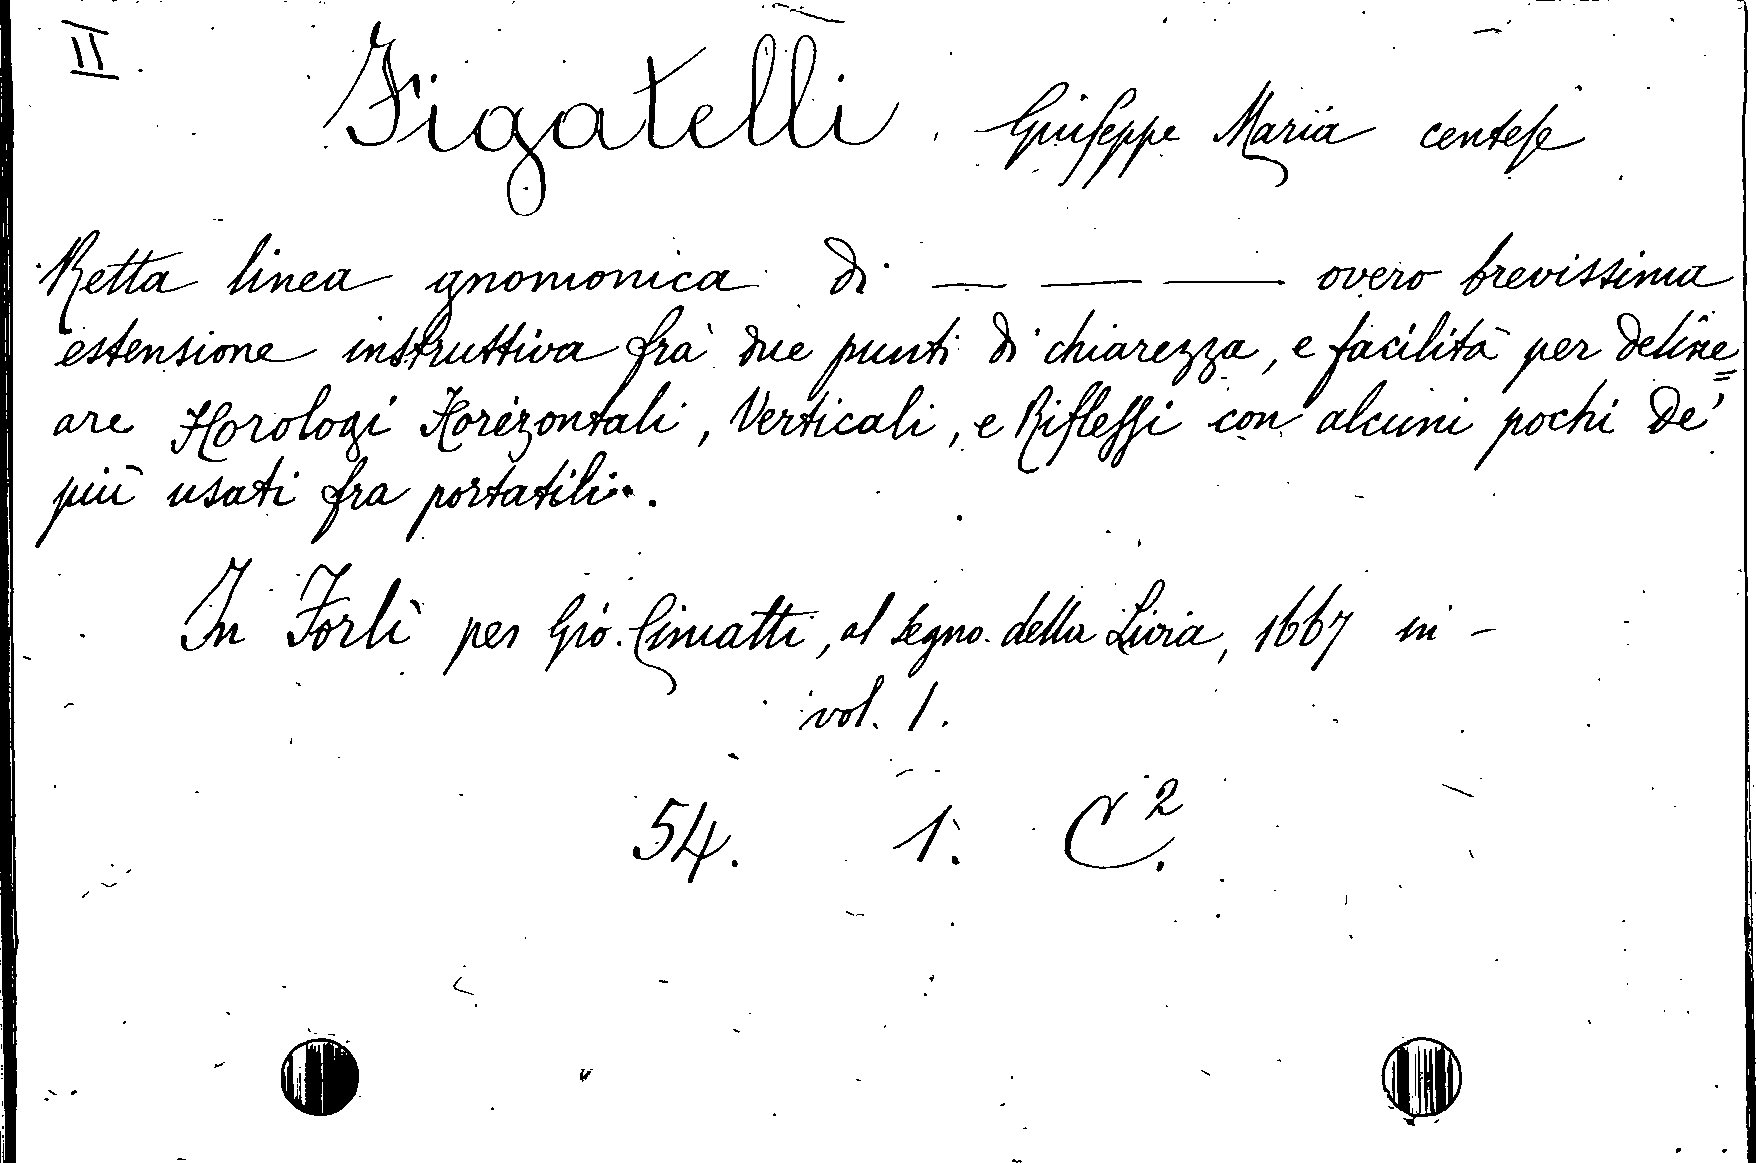 II
Figatelli Giuseppe Maria centese
Retta linea gnomonica di — — — overo brevissima
estensione instruttiva frà due punti di chiarezza, e facilità per deline=
are Horologi Horizontali, Verticali, e Riflessi con alcuni pochi de'
più usati fra portatili.
In Forlì per Gio. Cimatti, al segno della Livia, 1667 in -
vol. 1.
54. 1. C².